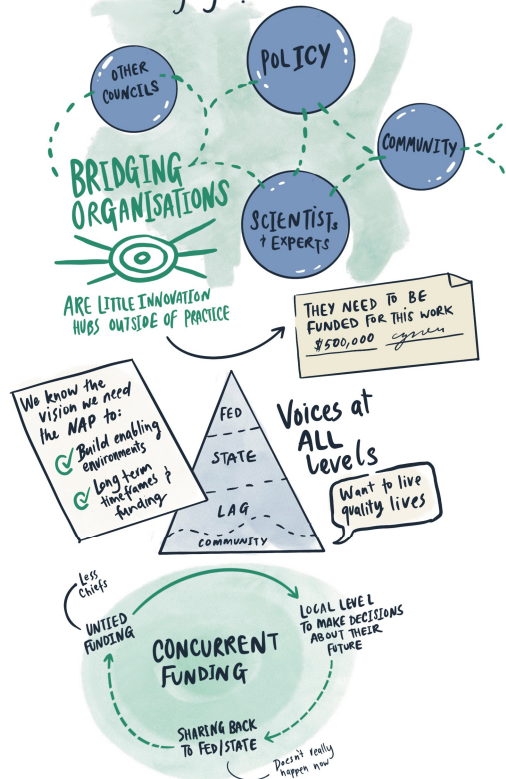 OTHER
COUNCILS
POLICY
COMMUNITY
BRIDGING
ORGANISATIONS
SCIENTISTs
+ EXPERTS
ARE LITTLE INNOVATION
HUBS OUTSIDE OF PRACTICE
THEY NEED TO BE
FUNDED FOR THIS WORK
$500,000
We know the
vision we need
the NAP to:
Build enabling
environments
Long term
timeframes +
funding
FED
STATE
LAG
COMMUNITY
Voices at
ALL
Levels
Want to live
quality lives
Less
Chiefs
UNTIED
FUNDING
LOCAL LEVEL
TO MAKE DECISIONS
ABOUT THEIR
FUTURE
CONCURRENT
FUNDING
SHARING BACK
TO FED/STATE
Doesn't really
happen now